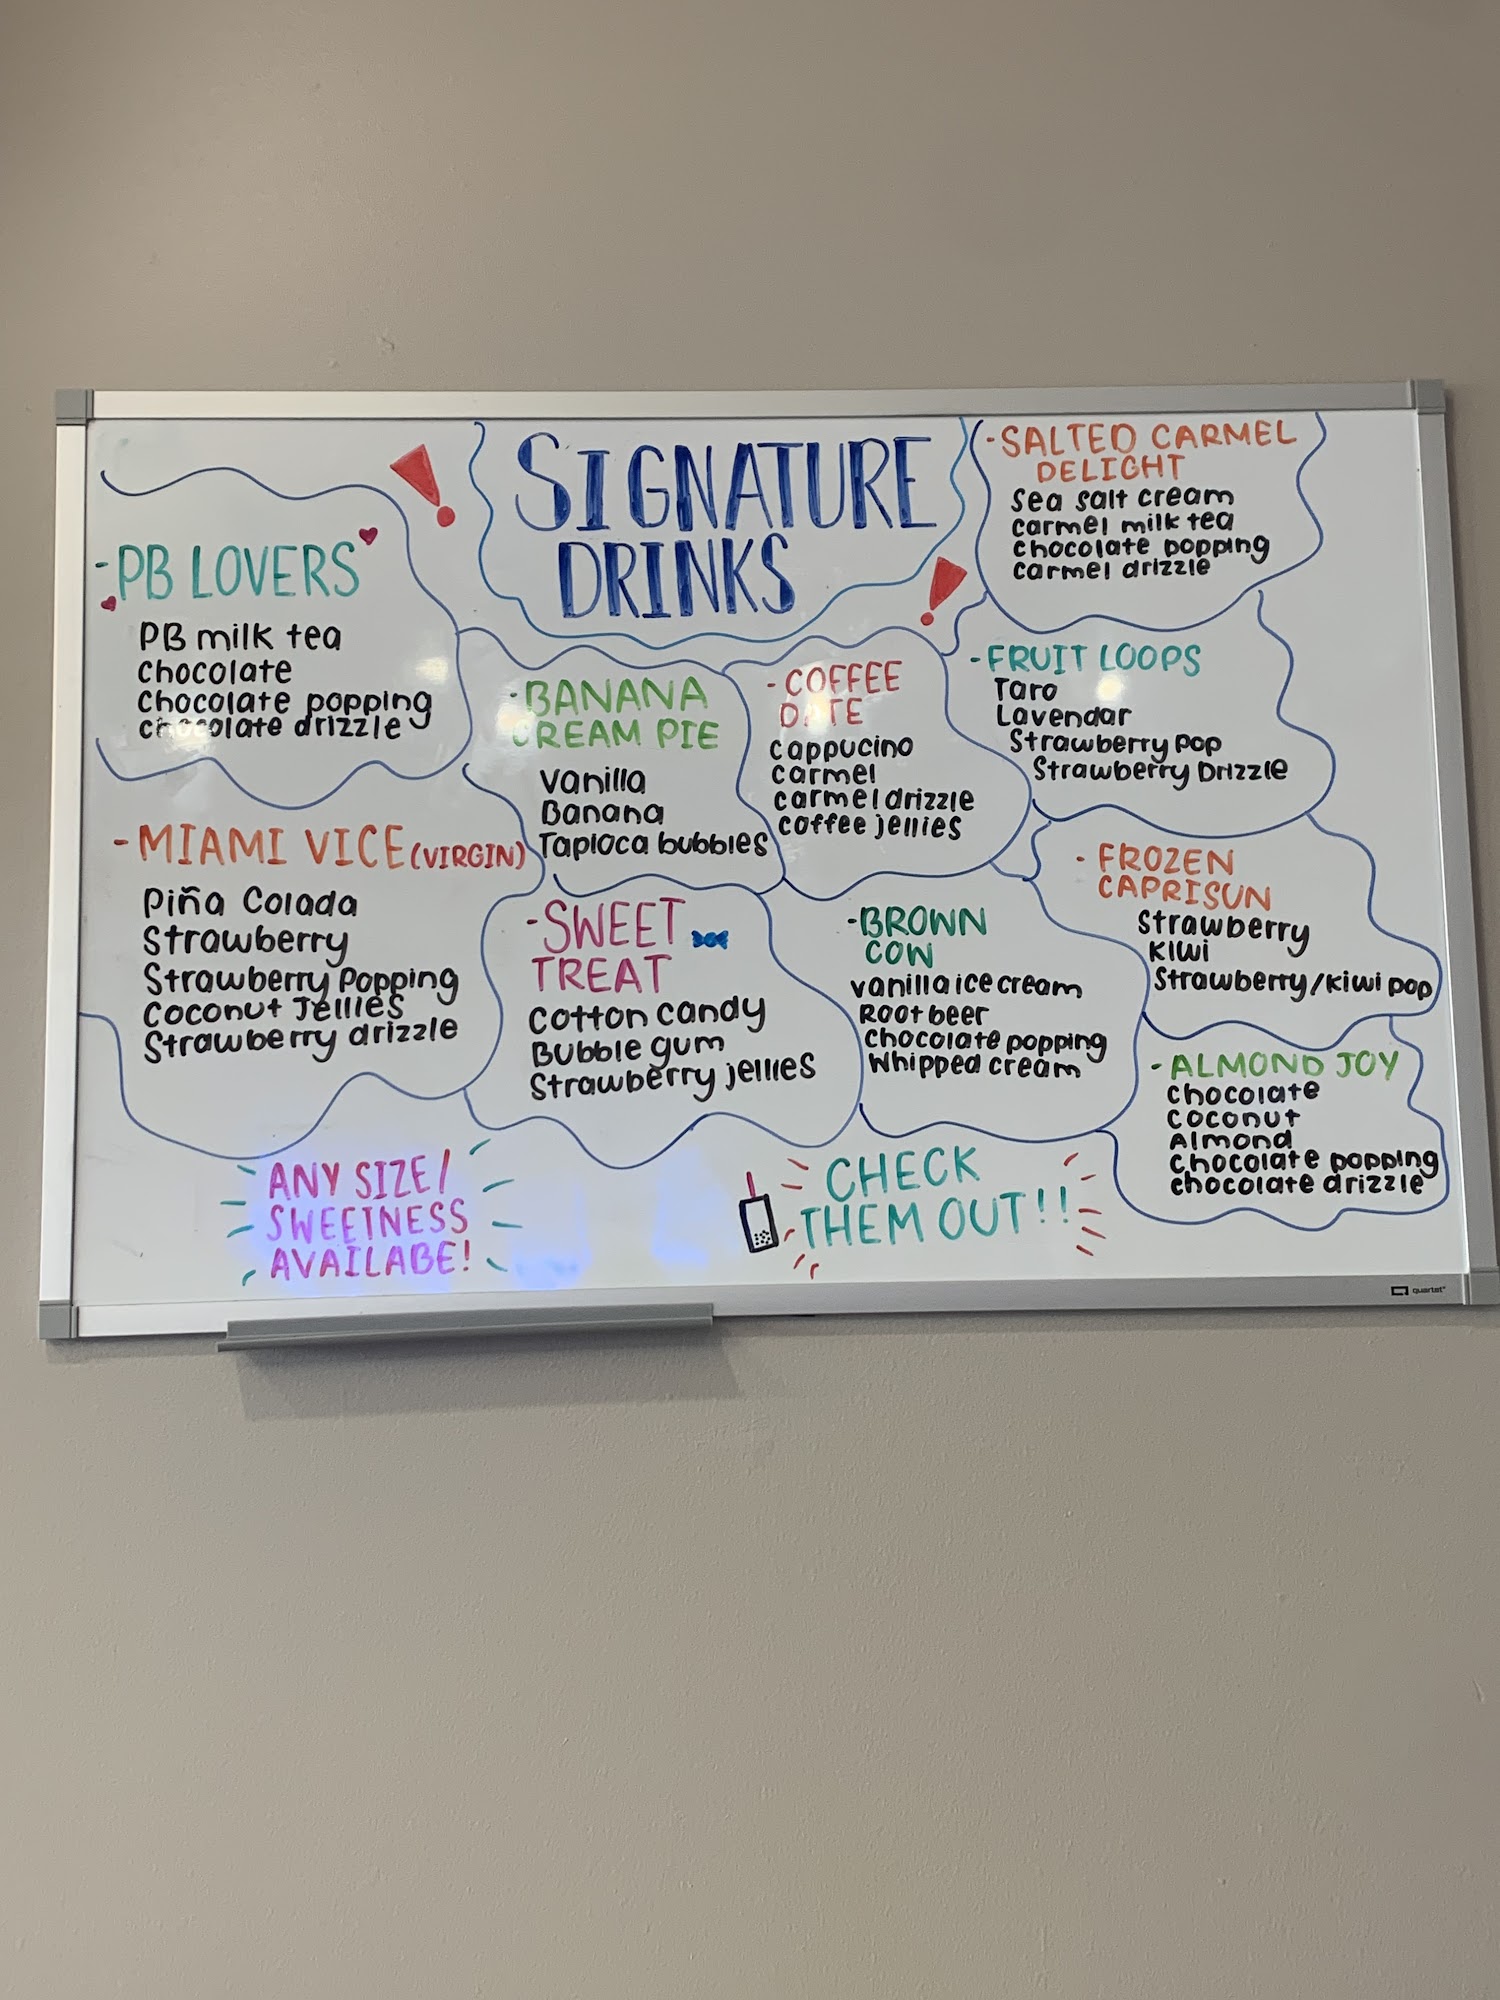 SIGNATURE
DRINKS
-PB LOVERS
PB milk tea
chocolate
Chocolate popping
chocolate drizzle
-MIAMI VICE (VIRGIN)
Piña Colada
Strawberry
Strawberry Popping
Coconut Jellies
Strawberry drizzle
-BANANA
CREAM PIE
Vanilla
Banana
Tapioca bubbles
-SWEET
TREAT
Cotton candy
Bubble gum
Strawberry jellies
-COFFEE
DATE
cappucino
carmel
carmel drizzle
coffee jellies
-BROWN
COW
vanilla ice cream
Root beer
Chocolate popping
Whipped cream
-SALTED CARMEL
DELIGHT
Sea salt cream
carmel milk tea
chocolate popping
carmel drizzle
-FRUIT LOOPS
Taro
Lavendar
Strawberry Pop
Strawberry Drizzle
-FROZEN
CAPRISUN
Strawberry
Kiwi
Strawberry/kiwi pop
-ALMOND JOY
chocolate
coconut
Almond
chocolate popping
chocolate drizzle
ANY SIZE/
SWEETNESS
AVAILABE!
CHECK
THEM OUT!!
quartet